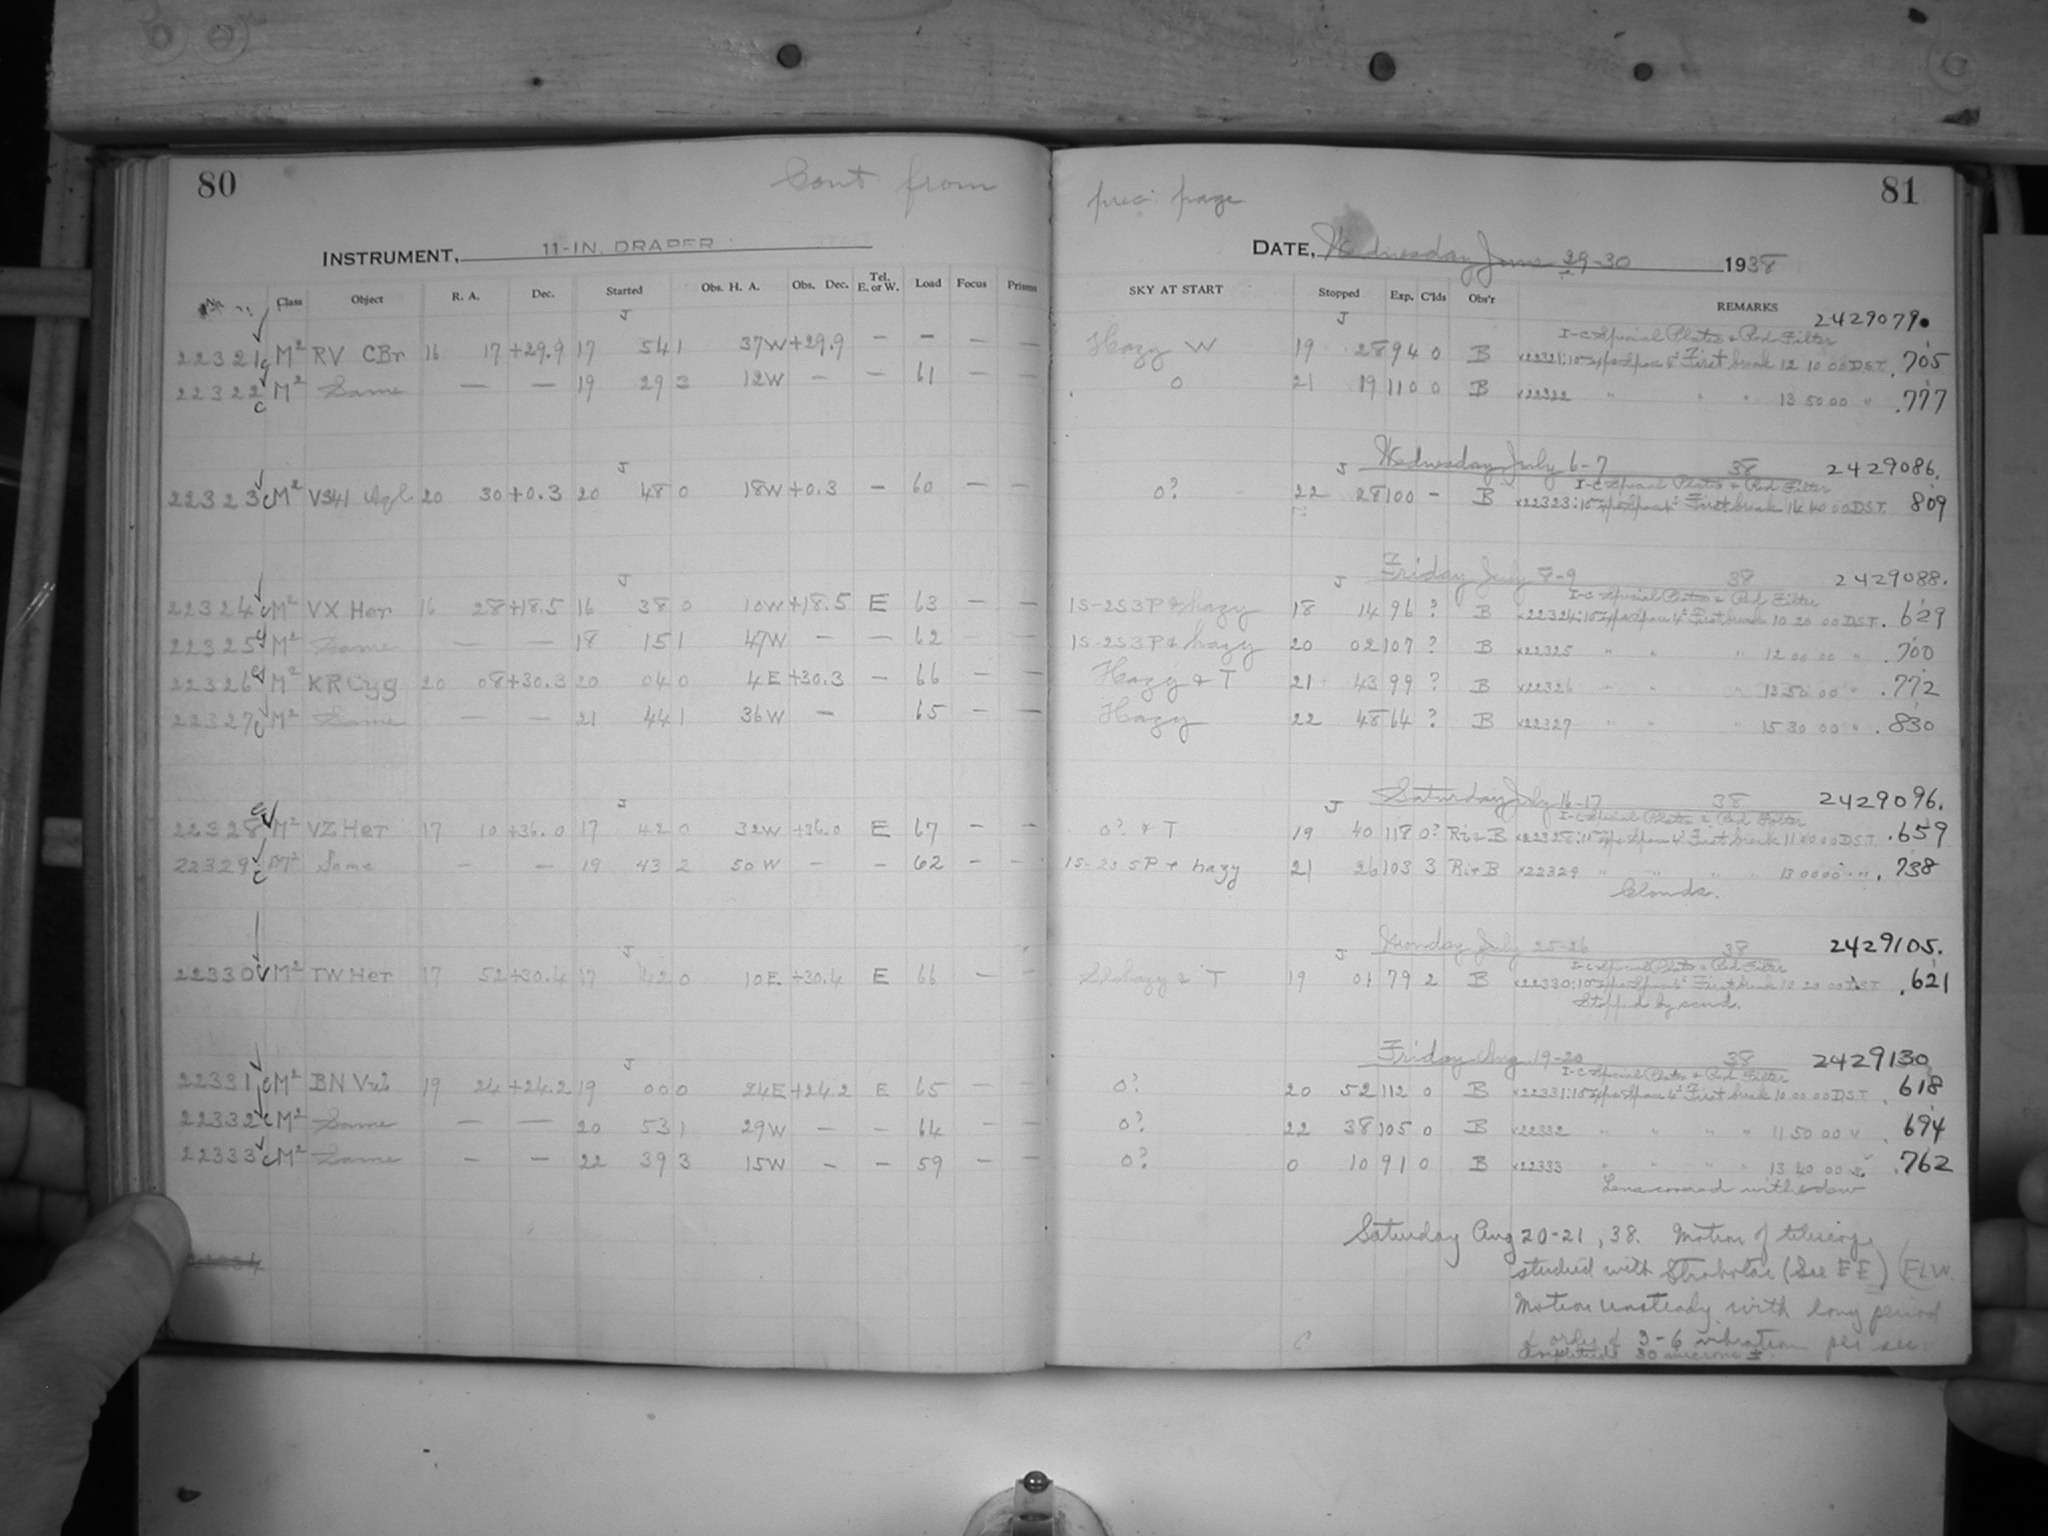 80
Cont from
INSTRUMENT, 11-IN. DRAPER
No. Class Object R. A. Dec. Started Obs. H. A. Obs. Dec. Tel. E. or W. Load Focus Prisms
J
22321 c M² RV CBr 16 17 +29.9 17 54 1 37W +29.9 — — — —
22322 c M² Same — — 19 29 3 12W — — 61 — —
J
22323 c M² V341 Aql 20 30 +0.3 20 48 0 18W +0.3 — 60 — —
J
22324 c M² VX Her 16 28 +18.5 16 38 0 10W +18.5 E 63 — —
22325 c M² Same — — 18 15 1 47W — — 62 — —
22326 c M² KR Cyg 20 08 +30.3 20 04 0 4E +30.3 — 66 — —
22327 c M² Same — — 21 44 1 36W — 65 — —
J
22328 c M² VZ Her 17 10 +36.0 17 42 0 32W +36.0 E 67 — —
22329 c M² Same — — 19 43 2 50W — — 62 — —
J
22330 c M² TW Her 17 52 +30.4 17 42 0 10E +30.4 E 66 — —
J
22331 c M² BN Vul 19 24 +24.2 19 00 0 24E +24.2 E 65 — —
22332 c M² Same — — 20 53 1 29W — — 64 — —
22333 c M² Same — — 22 39 3 15W — — 59 — —
81
prec. page
DATE, Wednesday June 29-30 1938
SKY AT START Stopped Exp. C'lds Obs'r REMARKS
J 2429079.
I-C Special Plates & Red Filter
Hazy W 19 28 94 0 B x22321: First break 12 10 00 D.S.T. .705
0 21 19 110 0 B x22322 " " " 13 50 00 " .777
J Wednesday July 6-7 38 2429086.
I-C Special Plates & Red Filter
0? 22 28 100 — B x22323: First break 14 40 00 D.S.T. 809
J Friday July 8-9 38 2429088.
I-C Special Plates & Red Filter
1S-2S3P & hazy 18 14 96 ? B x22324: First break 10 20 00 D.S.T. .629
1S-2S3P & hazy 20 02 107 ? B x22325 " " " 12 00 00 " .700
Hazy & T 21 43 99 ? B x22326 " " " 13 50 00 " .772
Hazy 22 48 64 ? B x22327 " " " 15 30 00 " .830
J Saturday July 16-17 38 2429096.
I-C Special Plates & Red Filter
0? & T 19 40 118 0? Ri & B x22328: First break 11 00 00 D.S.T. .659
1S-2S 5P & hazy 21 26 103 3 Ri & B x22329 " " " " 13 00 00 " .738
Clouds.
J Monday July 25-26 38 2429105.
I-C Special Plates & Red Filter
Sl hazy & T 19 01 79 2 B x22330: First break 10 20 00 D.S.T. .621
Stopped by scud.
Friday Aug 19-20 38 2429130
I-C Special Plates & Red Filter
0? 20 52 112 0 B x22331: First break 10 00 00 D.S.T. .618
0? 22 38 105 0 B x22332 " " " " 11 50 00 " .694
0? 0 10 91 0 B x22333 " " " " 13 40 00 " .762
Lens covered with dew
Saturday Aug 20-21, 38. Motion of telescope
studied with Strobotac (See E E) (FLW.
Motion unsteady with long period
of order of 3-6 vibration per sec
Amplitude 30 microns ±